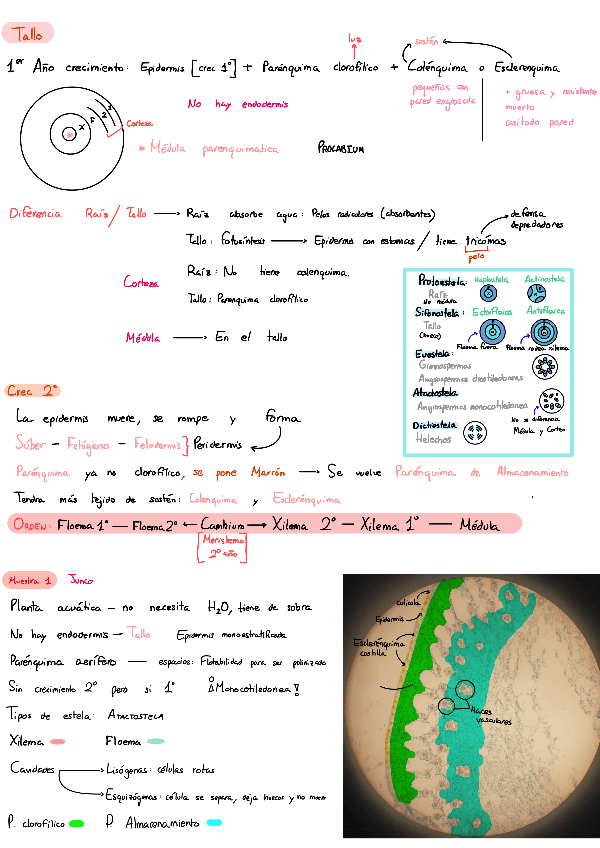 Tallo
luz
sostén
1er Año crecimiento: Epidermis [crec 1°] + Parénquima clorofílico + Colénquima o Esclerénquima
pequeñas con
pared engrosada
+ gruesa y resistente
muerta
casitoda pared
No hay endodermis
X F 2 1
Corteza
* Médula parenquimatica PROCABIUM
Diferencia Raíz / Tallo → Raíz absorbe agua: Pelos radiculares (absorbantes)
Tallo: fotosíntesis → Epidermis con estomas / tiene tricomas
defensa
depredadores
pelo
Corteza
Raíz: No tiene colenquima.
Tallo: Parenquima clorofílico
Médula → En el tallo
Protoestela: Haplostela Actinostela
Raíz
No médula
Sifonostela: Ectofloica Anfifloica
Tallo
(hueco)
Floema fuera Floema rodea xilema
Eustela:
Gimnospermas
Angiospermas dicotiledoneas
Atactostela
Angiospermas monocotiledonea
No se diferencia
Médula y Cortex
Dictiostela
Helechos
Crec 2°
La epidermis muere, se rompe y forma
Súber - Felógeno - Felodermis} Peridermis
Parénquima ya no clorofílico, se pone Marrón → Se vuelve Parénquima de Almacenamiento
Tendra más tejido de sostén: Colenquima y Esclerénquima
ORDEN: Floema 1° — Floema 2° ← Cambium → Xilema 2° — Xilema 1° — Médula
[Meristema
2º año]
Muestra 1 Junco
Planta acuática - no necesita H2O, tiene de sobra
No hay endodermis - Tallo Epidermis monoestratificada
Parénquima aerífero — espacios: Flotabilidad para ser polinizado
Sin crecimiento 2° pero si 1° ¡Monocotiledonea!
Tipos de estela: ATACTOSTELA
Xilema Floema
Cavidades → Lisógenas: células rotas
→ Esquizógenas: célula se separa, deja huecos y no muere
P. clorofílico P. Almacenamiento
cutícula
Epidermis
Esclerénquima
costilla
Haces
vasculares